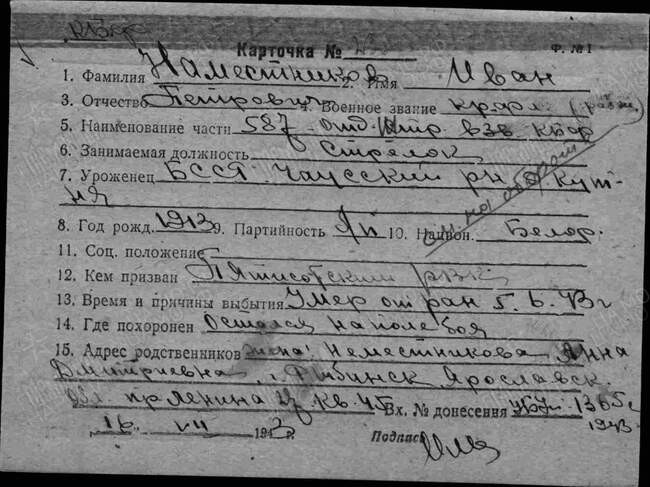 КБФ
Карточка №
Ф. №1
1. Фамилия Наместников 2. Имя Иван
3. Отчество Петрович 4. Военное звание кр.фл. (разж.)
5. Наименование части 587 отд. штр. взв. КБФ
6. Занимаемая должность Стрелок
7. Уроженец БССР Чаусский рн
ня
см на обороте
8. Год рожд. 1913 9. Партийность 10. Национ. Белор.
11. Соц. положение
12. Кем призван РВК
13. Время и причины выбытия Умер от ран 5.6.43г
14. Где похоронен Остался на поле боя
15. Адрес родственников жена: Неместникова Анна
Дмитриевна, г. Рыбинск Ярославск.
обл. пр Ленина кв. 45 Вх. № донесения 1365с
1943
16 VII 1943г.
Подпись